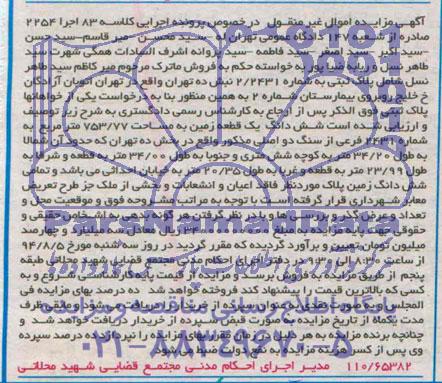 آگهی مزایده اموال غیر منقول در خصوص پرونده اجرایی کلاسه ۸۳ اجرا ۲۲۵۴
صادره از شعبه ۱۴۷ دادگاه عمومی تهران له سید محسن میر قاسم-سید حسن
سید اکبر سید اصغر سید فاطمه سید پروانه اشرف السادات همگی شهرت سید
طاهر نسل و ربابه به خواسته حکم به فروش ماترک مرحوم میر کاظم سید طاهر
نسل شامل پلاک ثبتی به شماره ۲/۲۴۳۱ نبش ده تهران واقع در تهران اتوبان آزادگان
خ خلیج روبروی بیمارستان شماره ۲ به همین منظور بنا به درخواست یکی از خواهانها
پلاک ثبتی فوق الذکر پس از ارجاع به کارشناس رسمی دادگستری به شرح زیر توصیف
و ارزیابی شده است شش دانگ یک قطعه زمین به مساحت ۷۵۳/۷۷ متر مربع به
شماره ۲۴۳۱ فرعی از سنگ دو اصلی مذکور واقع در بخش ده تهران که حدود آن شمالا
به طول ۳۴/۲۰ متر به کوچه شش متری و جنوبا به طول ۳۴/۰۰ متر به قطعه و شرقا به
طول ۲۳/۹۹ متر به قطعه و غربا به طول ۲۰/۳۵ متر به خیابان احداثی می باشد و تمامی
شش دانگ زمین پلاک موردنظر فاقد اعیان و انشعابات و بخشی از ملک جز طرح تعریض
معابر شهرداری قرار گرفته است با توجه به مراتب مشروحه فوق و موقعیت محل و
تعداد و عرض گذر و بررسی ها و با در نظر گرفتن هر گونه بدهی به اشخاص حقیقی و
حقوقی جهت پایه مزایده به مبلغ ریال معادل سه میلیارد و چهارصد
میلیون تومان تعیین و برآورد گردیده که مقرر گردید در روز سه شنبه مورخ ۹۴/۸/۵
از ساعت ۸:۳۰ الی ۹:۳۰ در دفتر اجرای احکام مدنی مجتمع قضایی شهید محلاتی طبقه
پنجم از طریق مزایده به فروش برسد و مزایده از قیمت پایه کارشناسی شروع و به
کسی که بالاترین قیمت را پیشنهاد کند فروخته خواهد شد ده درصد بهای مزایده فی
المجلس به صورت نقدی به عنوان سپرده از خریدار دریافت می شود و مابقی ظرف
مدت یکماه از تاریخ مزایده به صورت قبض سپرده از خریدار دریافت خواهد شد و
چنانچه برنده مزایده به هر دلیل در زمان مقرر بهای مزایده را نپردازد ده درصد سپرده
وی پس از کسر هزینه مزایده به نفع دولت ضبط می شود
۱۱۰/۶۵۳۸۲ مدیر اجرای احکام مدنی مجتمع قضایی شهید محلاتی
پایگاه اطلاع رسانی مناقصه و مزایده
۰۲۱-۸۸۳۴۹۶۷۰